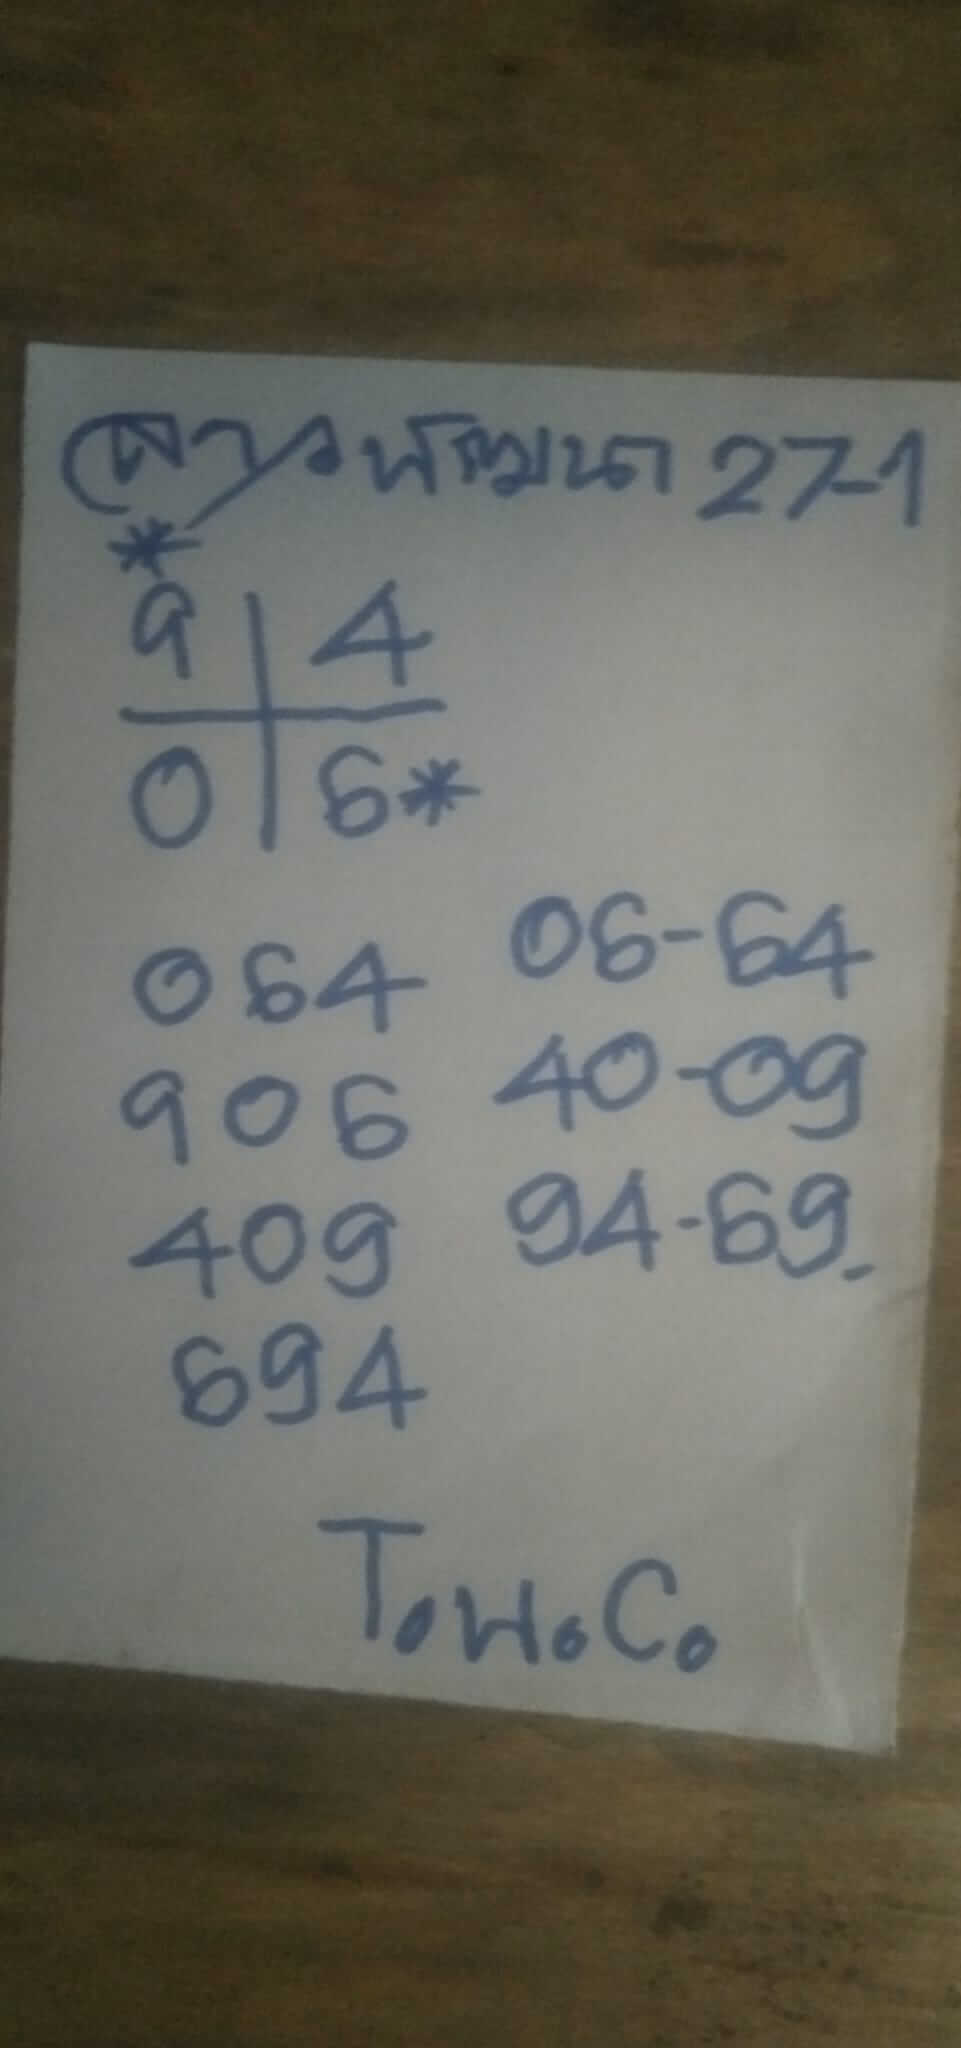 ลาวพัฒนา 27-1
*
9 4
0 6*
064 06-64
906 40-09
409 94-69.
694
T.พ.C.